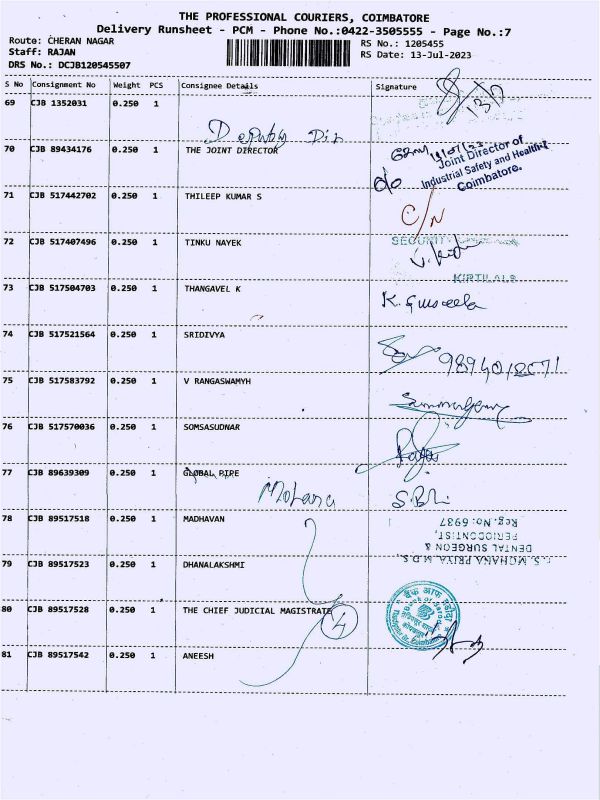 THE PROFESSIONAL COURIERS, COIMBATORE
Delivery Runsheet - PCM - Phone No.:0422-3505555 - Page No.:7
Route: CHERAN NAGAR
RS No.: 1205455
Staff: RAJAN
RS Date: 13-Jul-2023
DRS No.: DCJB120545507
S No Consignment No Weight PCS Consignee Details Signature
69 CJB 1352031 0.250 1
13/7
Deputy Dir
70 CJB 89434176 0.250 1 THE JOINT DIRECTOR
Joint Director of
Industrial Safety and Health-I
Coimbatore.
71 CJB 517442702 0.250 1 THILEEP KUMAR S
C/N
72 CJB 517407496 0.250 1 TINKU NAYEK
SECURITY
KIRTILALS
73 CJB 517504703 0.250 1 THANGAVEL K
K. Guseela
74 CJB 517521564 0.250 1 SRIDIVYA
9894018071
75 CJB 517583792 0.250 1 V RANGASWAMYH
76 CJB 517570036 0.250 1 SOMSASUDNAR
77 CJB 89639309 0.250 1 GLOBAL PIPE
Mohana
78 CJB 89517518 0.250 1 MADHAVAN
Reg. No: 6937
PERIODONTIST,
DENTAL SURGEON &
MOHANA PRIYA, M.D.S.
79 CJB 89517523 0.250 1 DHANALAKSHMI
80 CJB 89517528 0.250 1 THE CHIEF JUDICIAL MAGISTRATE
4
बैंक ऑफ़ बड़ौदा
Bank of Baroda
81 CJB 89517542 0.250 1 ANEESH